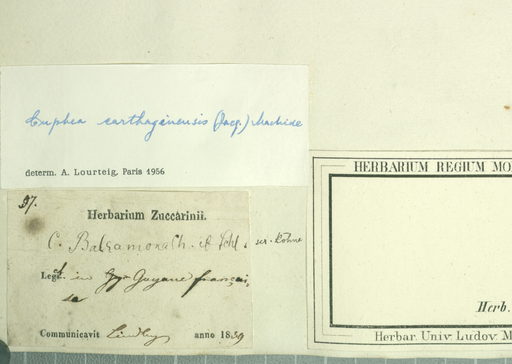 Cuphea carthaginensis (Jacq.) Macbride
determ. A. Lourteig, Paris 1956
HERBARIUM REGIUM MO
37.
Herbarium Zuccarinii.
C. Balsamona Ch. et Schl. sec. Köhne
Legit in Guyane françai
se
Communicavit Lindley anno 1839
Herb.
Herbar. Univ. Ludov. M